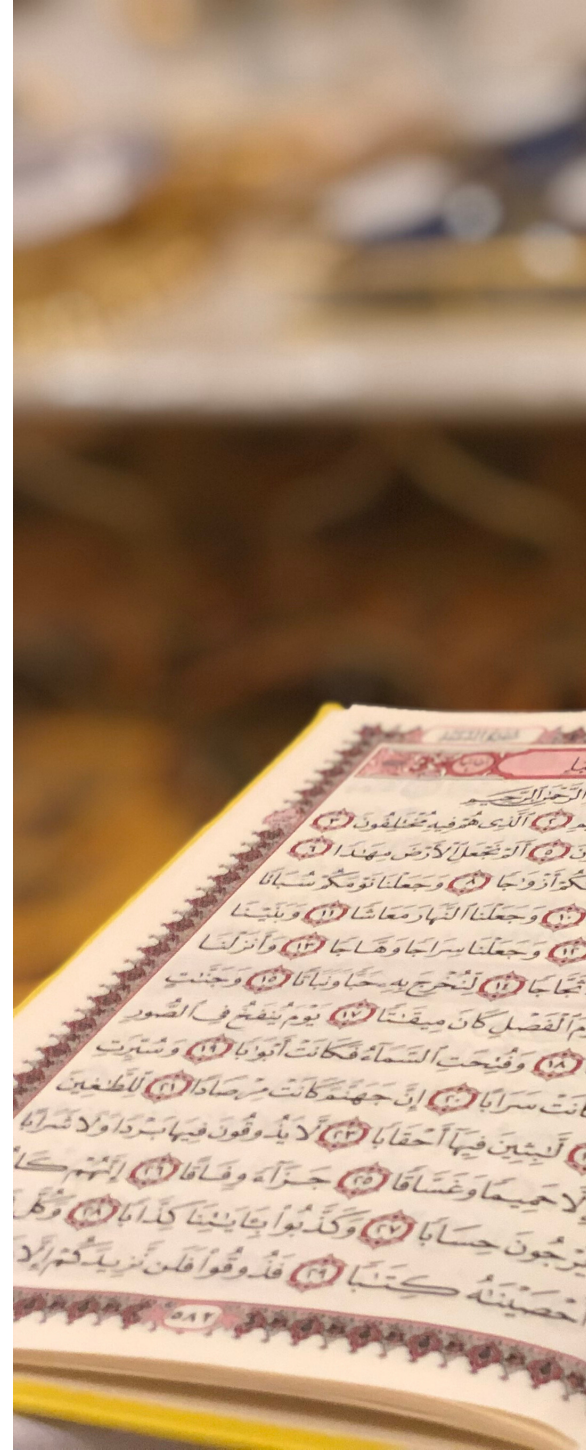 الرَّحْمَٰنِ الرَّحِيمِ
٢ ٱلَّذِى هُمْ فِيهِ مُخْتَلِفُونَ ٣
٥ أَلَمْ نَجْعَلِ ٱلْأَرْضَ مِهَٰدًا ٦
أَزْوَٰجًا ٨ وَجَعَلْنَا نَوْمَكُمْ سُبَاتًا
١٠ وَجَعَلْنَا ٱلنَّهَارَ مَعَاشًا ١١ وَبَنَيْنَا
١٢ وَجَعَلْنَا سِرَاجًا وَهَّاجًا ١٣ وَأَنزَلْنَا
ثَجَّاجًا ١٤ لِّنُخْرِجَ بِهِۦ حَبًّا وَنَبَاتًا ١٥ وَجَنَّٰتٍ
ٱلْفَصْلِ كَانَ مِيقَٰتًا ١٧ يَوْمَ يُنفَخُ فِى ٱلصُّورِ
١٨ وَفُتِحَتِ ٱلسَّمَآءُ فَكَانَتْ أَبْوَٰبًا ١٩ وَسُيِّرَتِ
سَرَابًا ٢٠ إِنَّ جَهَنَّمَ كَانَتْ مِرْصَادًا ٢١ لِّلطَّٰغِينَ
لَّٰبِثِينَ فِيهَآ أَحْقَابًا ٢٣ لَّا يَذُوقُونَ فِيهَا بَرْدًا وَلَا شَرَابًا
إِلَّا حَمِيمًا وَغَسَّاقًا ٢٥ جَزَآءً وِفَاقًا ٢٦ إِنَّهُمْ
يَرْجُونَ حِسَابًا ٢٧ وَكَذَّبُوا۟ بِـَٔايَٰتِنَا كِذَّابًا ٢٨ وَكُلَّ
أَحْصَيْنَٰهُ كِتَٰبًا ٢٩ فَذُوقُوا۟ فَلَن نَّزِيدَكُمْ إِلَّا
٥٨٢